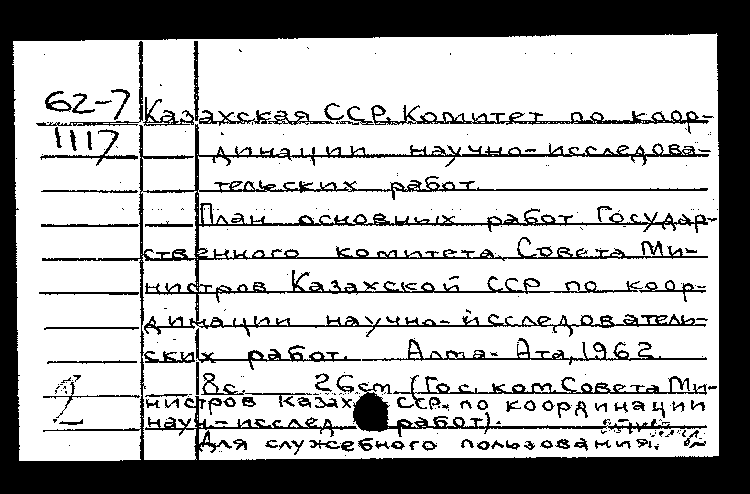 62-7 Казахская ССР. Комитет по коор-
1117 динации научно-исследова-
тельских работ.
План основных работ Государ-
ственного комитета Совета Ми-
нистров Казахской ССР по коор-
динации научно-исследователь-
ских работ. Алма-Ата, 1962.
8с. 26cm. (Гос. ком. Совета Ми-
нистров Казах ССР. по координации
науч-исслед работ).
Для служебного пользования.
2